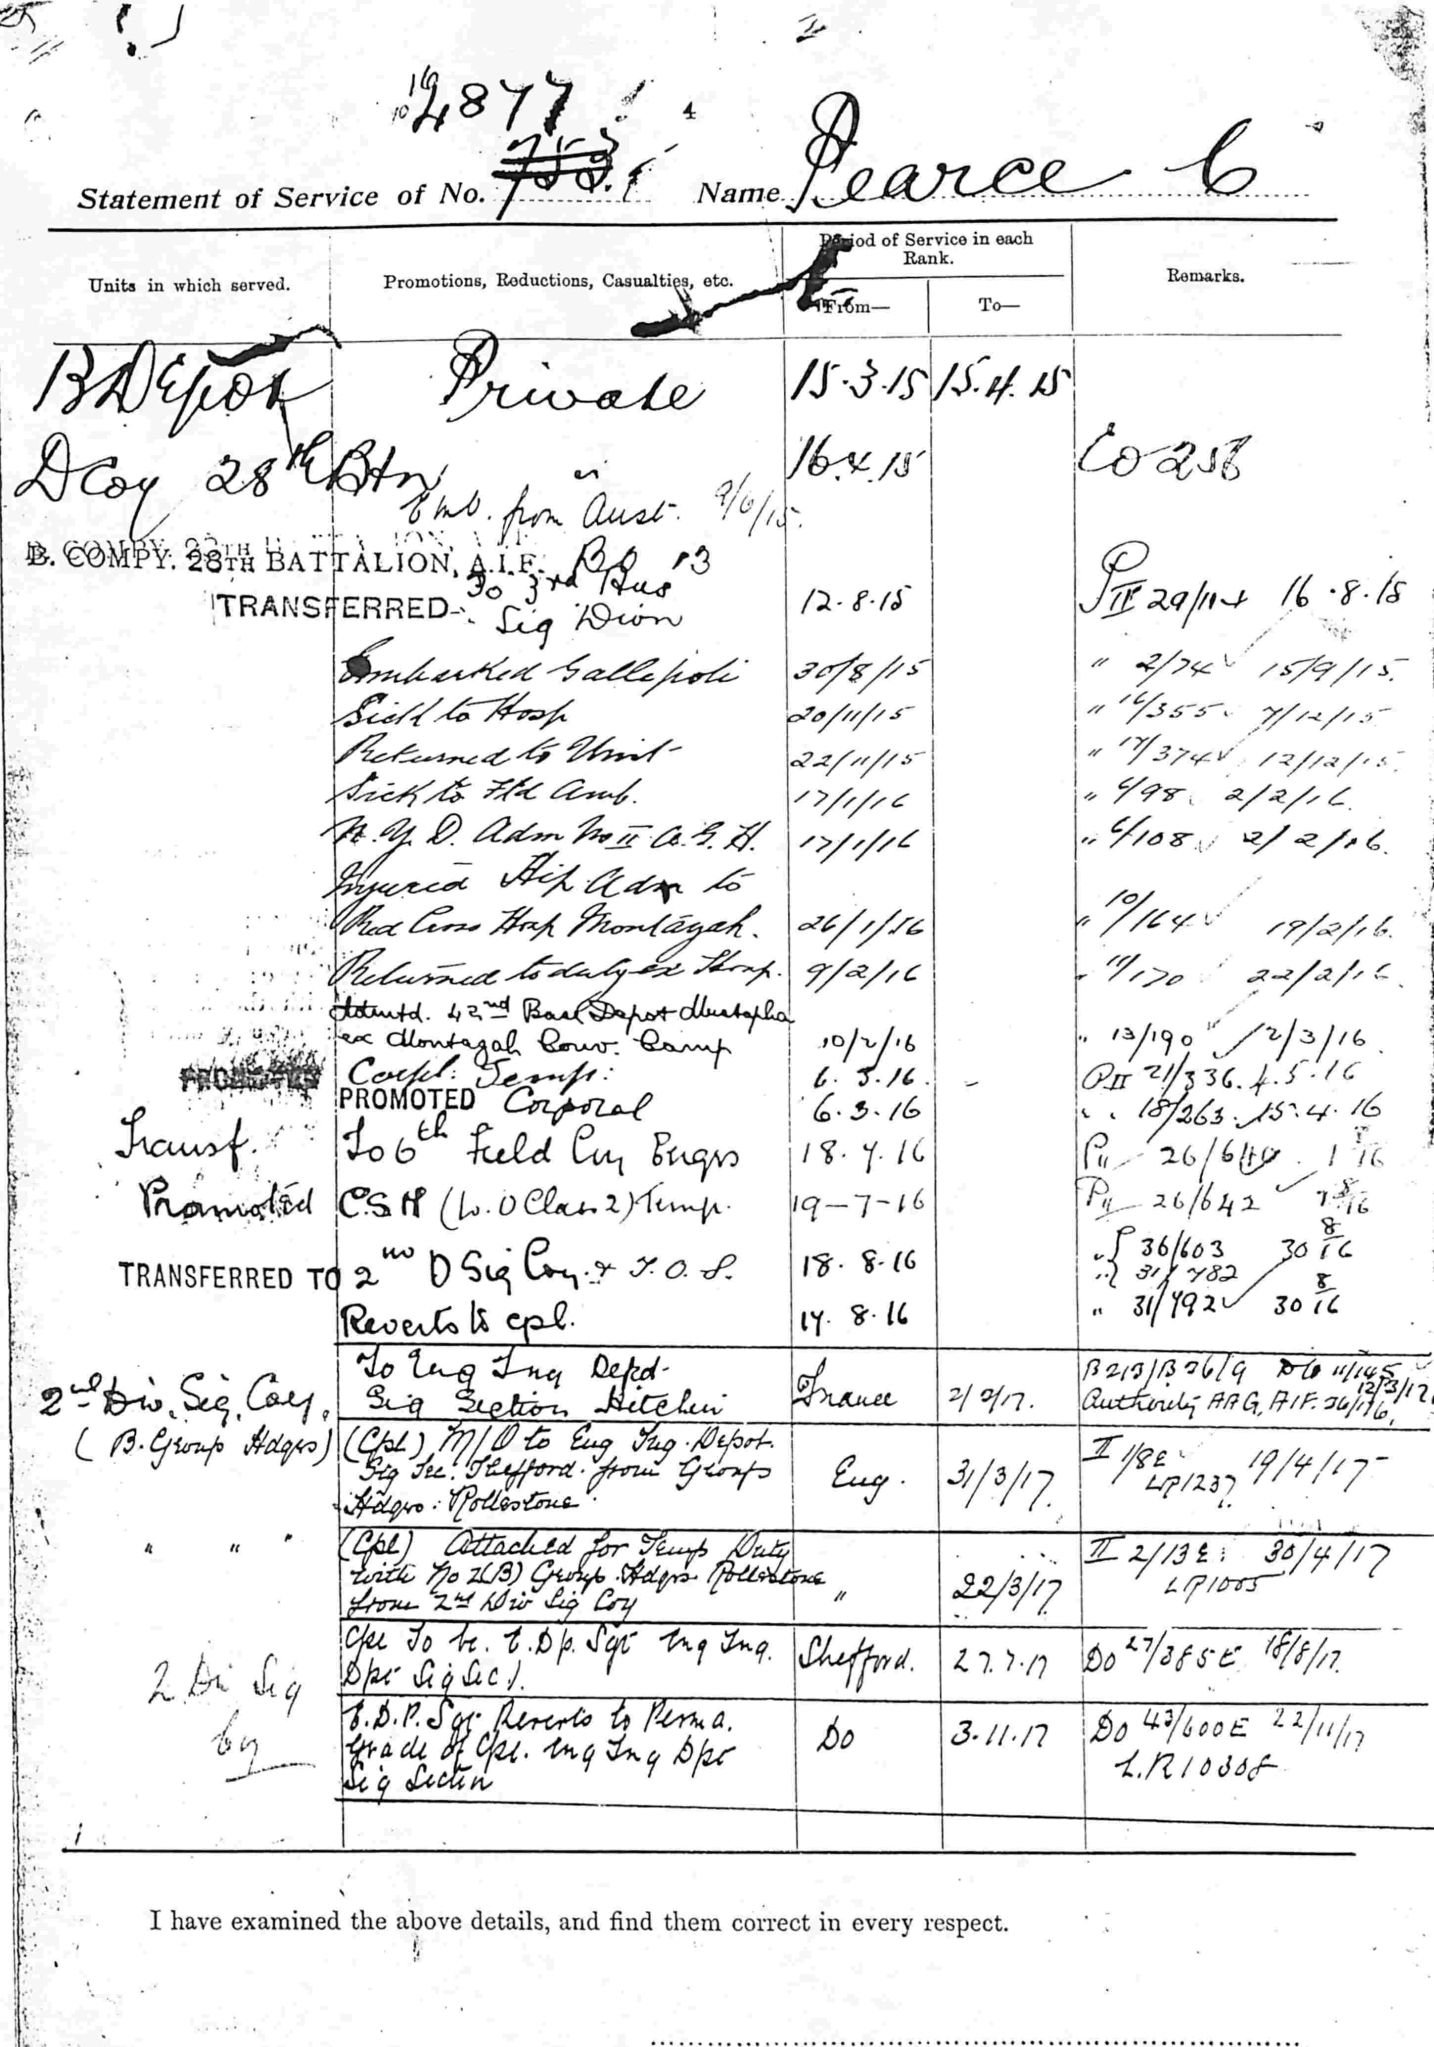 4877
4
Statement of Service of No. 753 Name Pearce C
Units in which served. Promotions, Reductions, Casualties, etc. Period of Service in each Rank. Remarks.
From— To—
B Depot Private 15.3.15 15.4.15
D Coy 28th Btn 16.4.15 CO 256
Emb. from Aust. 9/6/15.
D. COMPY. 28TH BATTALION, A.I.F. BO 13
TRANSFERRED To 3rd Bus
Sig Dion 12.8.15 PII 29/11 16.8.15
Embarked Gallipoli 30/8/15 " 2/74 15/9/15.
Sick to Hosp 20/11/15 " 16/355 7/12/15
Returned to Unit 22/11/15 " 17/374 12/12/15.
Sick to Fld Amb. 17/1/16 " 6/98 2/2/16.
N.Y.D. Adm No II A.G.H. 17/1/16 " 6/108 2/2/16.
Injured Hip Adm to
Red Cross Hosp Montazah. 26/1/16 " 10/164 19/2/16.
Returned to duty ex Hosp. 9/2/16 " 11/170 22/2/16
Admtd. 42nd Base Depot Mustapha
ex Montazah Conv. Camp 10/2/16 " 13/190 2/3/16.
PROMOTED Corpl: Temp: 6.3.16. PII 21/336. 4.5.16
PROMOTED Corporal 6.3.16 " 18/263. 15.4.16
Transf. To 6th Field Coy Engrs 18.7.16 PII 26/640 1 8/16
Promoted C.S.M (W.O Class 2) Temp. 19-7-16 PII 26/642 1 8/16
TRANSFERRED TO 2nd D Sig Coy. & T.O.S. 18.8.16 " 36/603 30 8/16
" 31/782
Reverts to cpl. 17.8.16 " 31/792 30 8/16
To Eng Tng Depot B213/B26/9 DO 11/145
2nd Div. Sig. Coy. Sig Section Hitchin France 2/2/17. 12/3/17
Authority AAG, AIF. 26/176.
(B. Group Hdqrs) (Cpl) M/O to Eng Tng. Depot.
Sig Sec. Shefford. from Group Eng. 31/3/17. II 1/8E 19/4/17
Hdqrs. Rollestone LR1237
" " " (Cpl) Attached for Temp Duty II 2/13E. 30/4/17
with No 2(B) Group Hdqrs Rollestone " 22/3/17. LR1005
from 2nd Div Sig Coy
Cpl To be. E.Dp. Sgt Eng Tng. Shefford. 27.7.17 DO 27/385E 18/8/17.
Dpt Sig Sec).
2 Div Sig
Coy
E.D.P. Sgt Reverts to Perma. Do 3.11.17 DO 43/600E 22/11/17
Grade of Cpl. Eng Tng Dpt L.R10308
Sig Section
I have examined the above details, and find them correct in every respect.